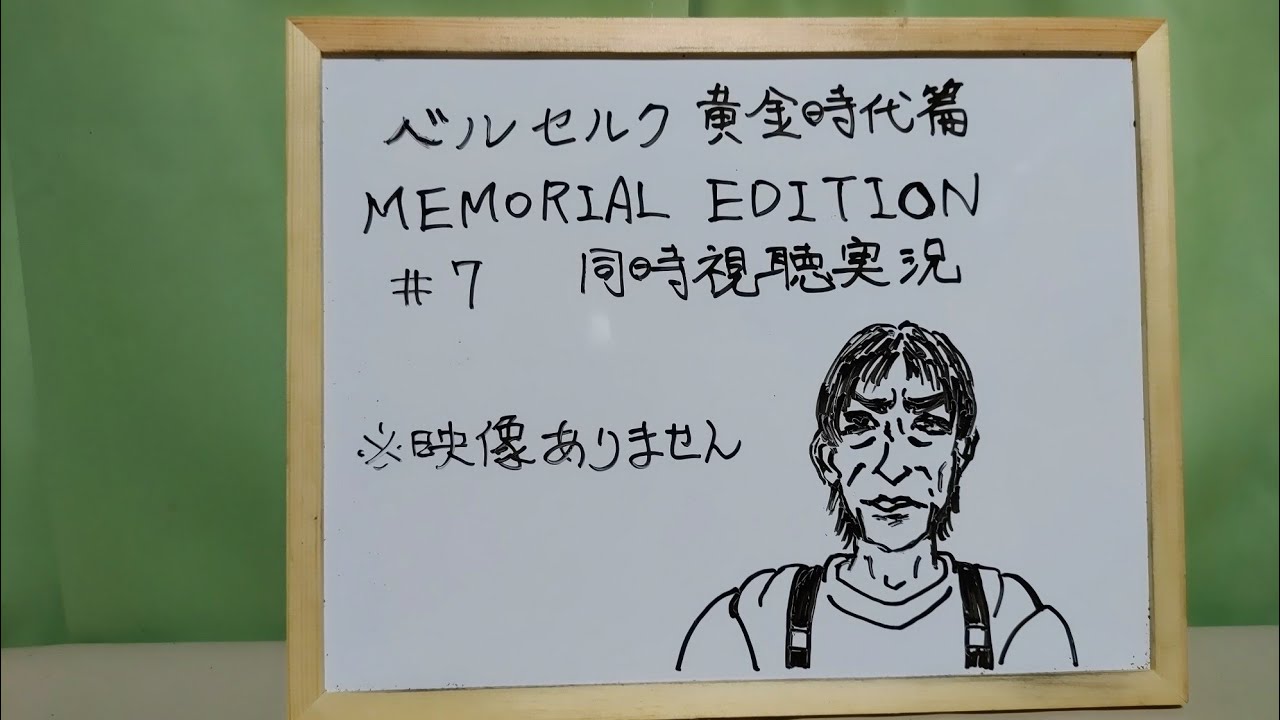 ベルセルク 黄金時代篇
MEMORIAL EDITION
#7 同時視聴実況
※映像ありません